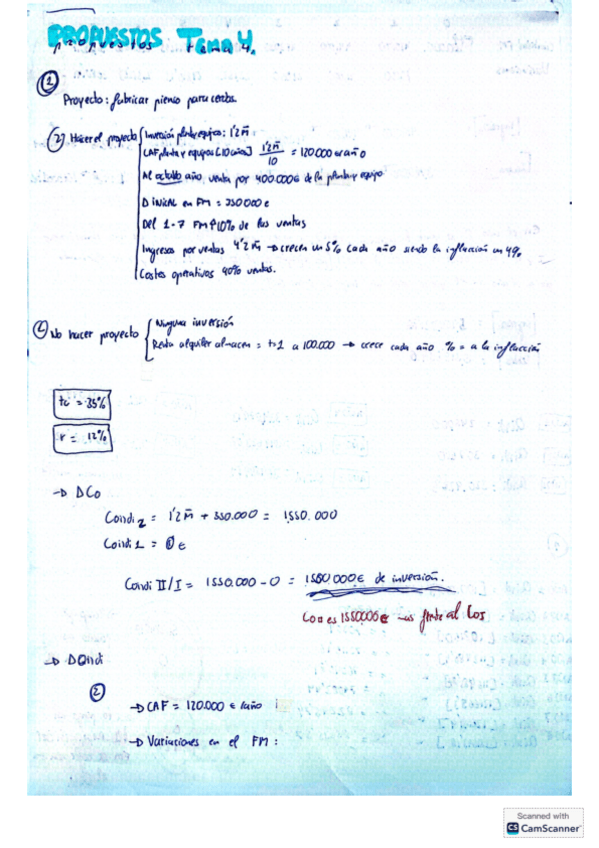 PROPUESTOS TEMA 4.
①
Proyecto: fabricar pienso para cerdos.
② Hacer el proyecto
Inversión planta y equipos: 1'2 m̄
CAF planta y equipos (10 años) 1'2m̄/10 = 120.000 € año
Al octavo año venta por 400.000€ de la planta y equipo
Δ INICIAL en FM = 350.000 €
Del 1-7 FM↑10% de las ventas
Ingresos por ventas 4'2 m̄ → crecen un 5% cada año siendo la inflacción un 4%
Costes operativos 90% ventas.
① No hacer proyecto
Ninguna inversión
Renta alquiler almacen = t=1 a 100.000 → crece cada año % = a la inflacción
tc = 35%
r = 12%
→ DCo
Condi 2 = 1'2 m̄ + 350.000 = 1550.000
Condi 1 = 0 €
Condi II/I = 1550.000 - 0 = 1550.000€ de inversión.
Co es 1550000€
→ DQndi
②
→ CAF = 120.000 € /año
→ Variaciones en el FM :
Scanned with
CS CamScanner